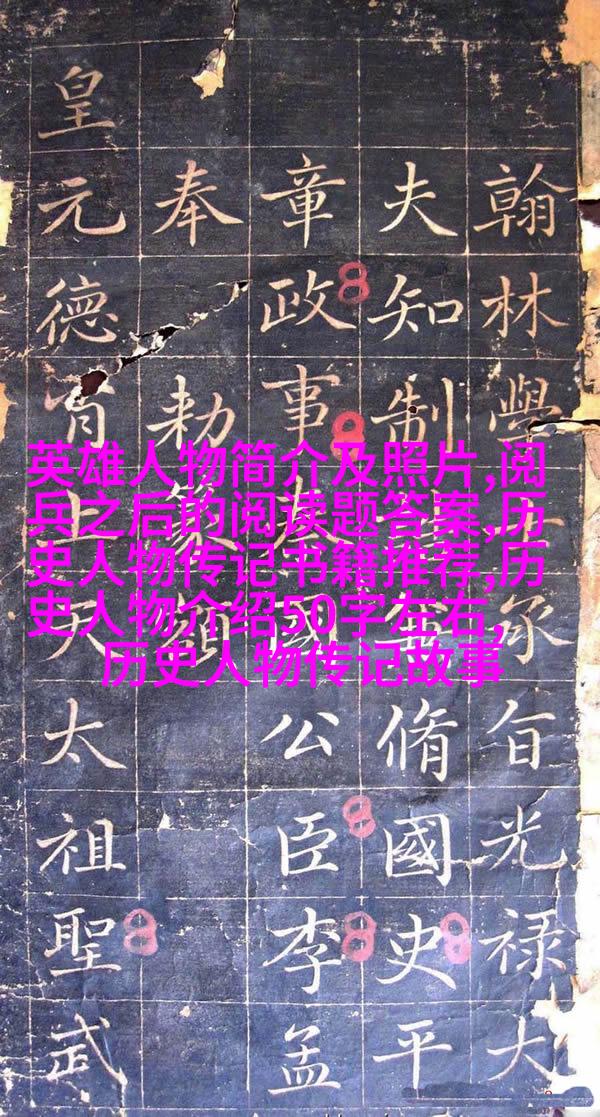 翰林學士承旨光禄大
夫知制脩國史平
章政事國公臣李孟
奉勅篆
皇元德上天太祖聖武
英雄人物简介及照片,阅
兵之后的阅读题答案,历
史人物传记书籍推荐,历
史人物介绍50字左右,
历史人物传记故事
8
8
8
8
8
8